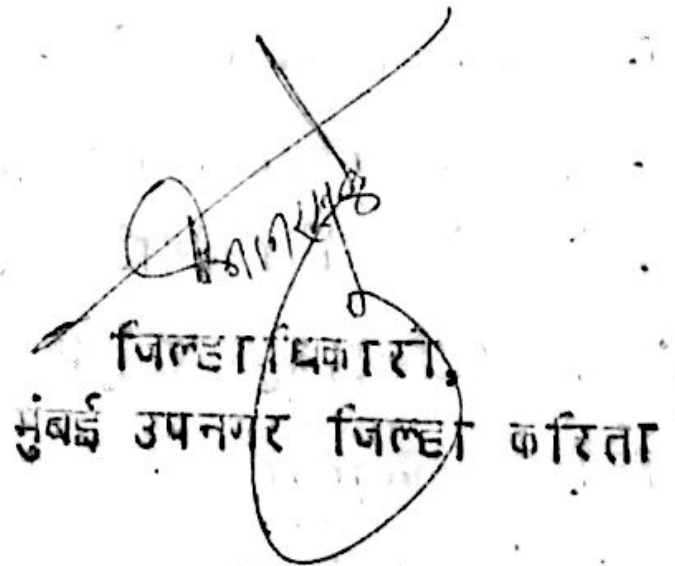 जिल्हाधिकारी,
मुंबई उपनगर जिल्हा करिता